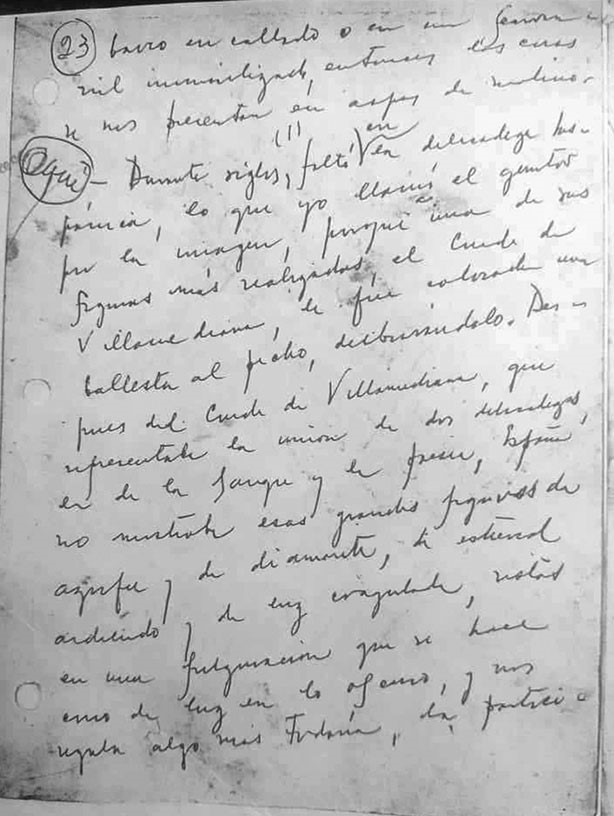 23 barco encallado o en un
rril inmovilizado, entonces las cosas
se nos presentan en aspas de molino.
(1)
Aquí – Durante siglos, faltó en la delicadeza his-
pánica, lo que yo llamé el genitor
por la imagen, porque a una de sus
figuras más realizadas, el Conde de
Villamediana, le fué colocada una
ballesta al pecho, destruyéndolo. Des-
pues del Conde de Villamediana, que
representaba la unión de dos delicadezas,
la de la sangre y la poesía, España
no mostraba esas grandes figuras de
azufre y de diamante, de estiercol
ardiendo y de luz coagulada, vistas
en una fulguración que se hace
de luz en lo oscuro, y nos
regala algo más todavía, la partici-